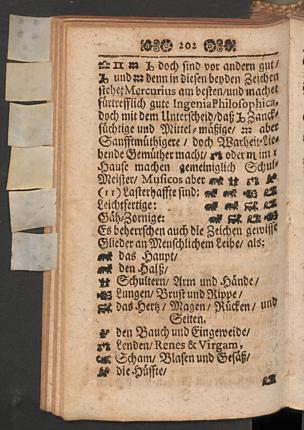 202
♎ ♊ ♒ ♄ doch sind vor andern gut/
♄ und ♒ denn in diesen beyden Zeichen
stehet Mercurius am besten/ und machet
fürtrefflich gute Ingenia Philosophica,
doch mit dem Unterscheid/ daß ♄ Zanck-
süchtige und Mittel-mäßige/ ♒ aber
Sanfftmüthigere/ doch Warheit-Lie-
bende Gemüther macht/ oder ♏ im 1
Hause machen gemeiniglich Schul-
Meister/ Musicos aber
(11) Lasterhaffte sind:
Leichtfertige:
Gäh-Zornige:
Es beherrschen auch die Zeichen gewisse
Glieder an Menschlichem Leibe/ als:
das Haupt/
den Halß/
Schultern/ Arm und Hände/
Lungen/ Brust und Rippe/
das Hertz/ Magen/ Rücken/ und
Seiten.
den Bauch und Eingeweide/
Lenden/ Renes & Virgam,
Scham/ Blasen und Gesäß/
die Hüffte/